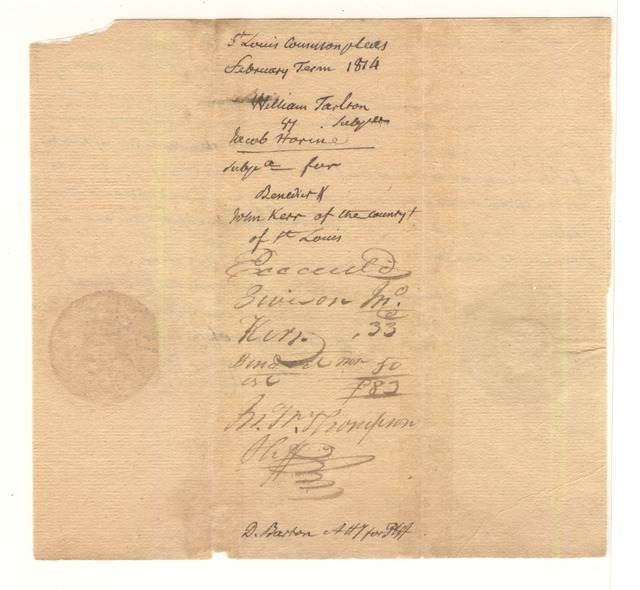 St Louis Common pleas
February Term 1814
William Tarlton
vs Subpa
Jacob Horine
Subpa for
Benedict
John Kerr of the County
of St Louis
Executed
Jno.
Kerr ,33
50
$83
Jn. W. Thompson
Shff
D. Barton Atty for Plff